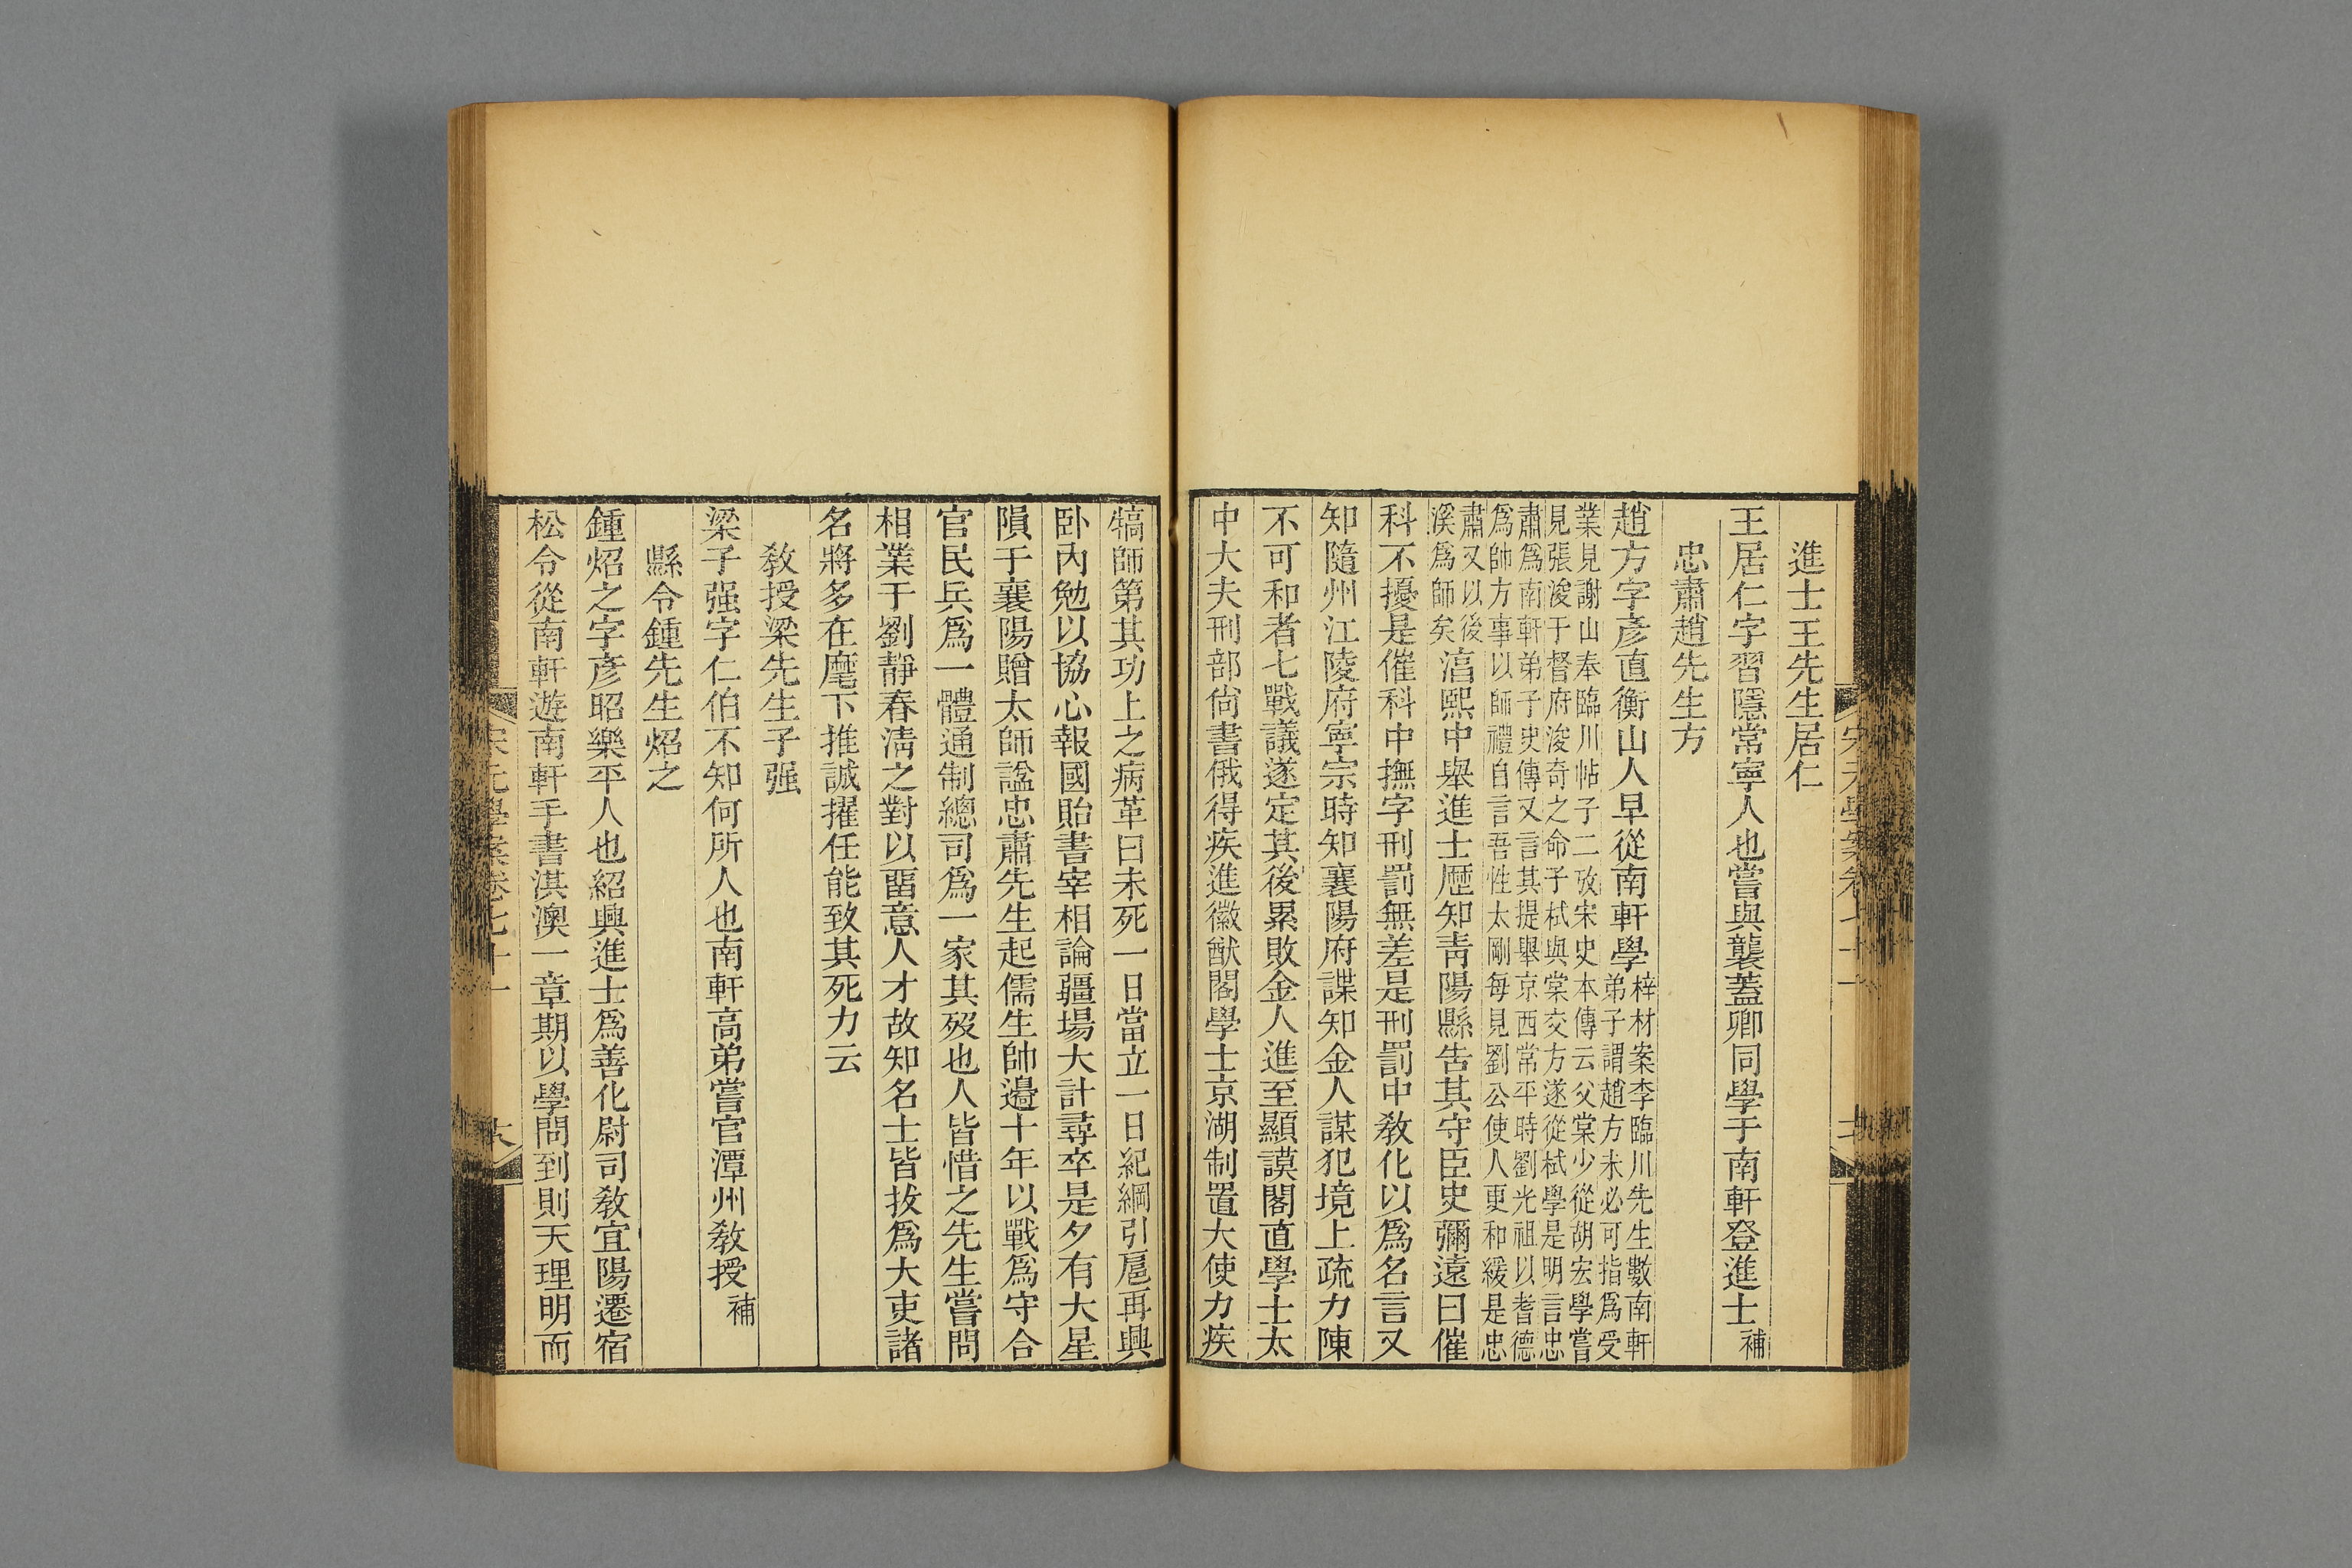 進士王先生居仁
王居仁字習隱常寧人也嘗與襲蓋卿同學于南軒登進士補
忠肅趙先生方
趙方字彥直衡山人早從南軒學
梓材案李臨川先生數南軒
弟子謂趙方未必可指爲受
業見謝山奉臨川帖子二攷宋史本傳云父棠少從胡宏學嘗
見張浚于督府浚奇之命子栻與棠交方遂從栻學是明言忠
肅爲南軒弟子史傳又言其提舉京西常平時劉光祖以耆德
爲師方事以師禮自言吾性太剛每見劉公使人更和緩是忠
肅又以後
溪爲師矣
淳熙中舉進士歷知青陽縣告其守臣史彌遠曰催
科不擾是催科中撫字刑罰無差是刑罰中敎化以爲名言又
知隨州江陵府寧宗時知襄陽府諜知金人謀犯境上疏力陳
不可和者七戰議遂定其後累敗金人進至顯謨閣直學士太
中大夫刑部尙書俄得疾進徽猷閣學士京湖制置大使力疾
犒師第其功上之病革曰未死一日當立一日紀綱引扈再興
卧內勉以協心報國貽書宰相論疆場大計尋卒是夕有大星
隕于襄陽贈太師諡忠肅先生起儒生帥邊十年以戰爲守合
官民兵爲一體通制總司爲一家其歿也人皆惜之先生嘗問
相業于劉靜春淸之對以畱意人才故知名士皆拔爲大吏諸
名將多在麾下推誠擢任能致其死力云
敎授梁先生子强
梁子强字仁伯不知何所人也南軒高弟嘗官潭州敎授補
縣令鍾先生炤之
鍾炤之字彥昭樂平人也紹興進士爲善化尉司敎宜陽遷宿
松令從南軒遊南軒手書淇澳一章期以學問到則天理明而
宋元學案卷七十一